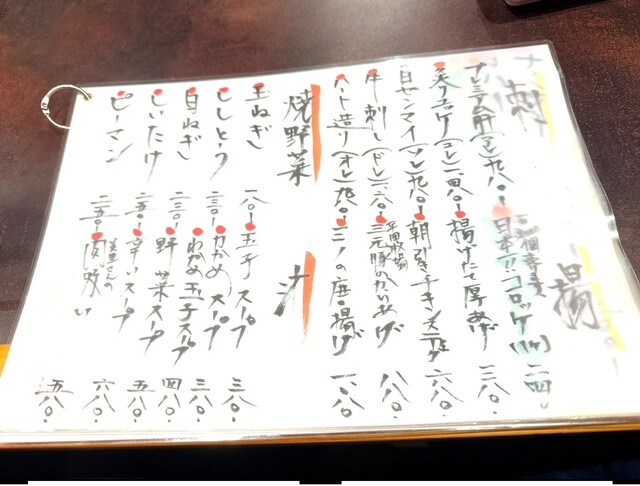 刺
プレミアム肝(タレ)九八〇-
炙りユッケ(コレ)一四八〇-
白センマイ(ソレ)九八〇-
牛刺し(ドレ)一二六〇-
ハート造り(オレ)九八〇-
揚
日本一!!コロッケ(1ヶ)二四〇-
揚げたて厚あげ 三八〇-
朝引きチキン 六八〇-
平田牧場
三元豚のからあげ 八八〇-
焼野菜
玉ねぎ 一八〇-
ししとう 二三〇-
白ねぎ 二三〇-
しいたけ 二五〇-
ピーマン 二五〇-
汁
玉子スープ 三八〇-
わかめスープ 三八〇-
わかめ玉子スープ 四八〇-
野菜スープ 五八〇-
辛いスープ 六八〇-